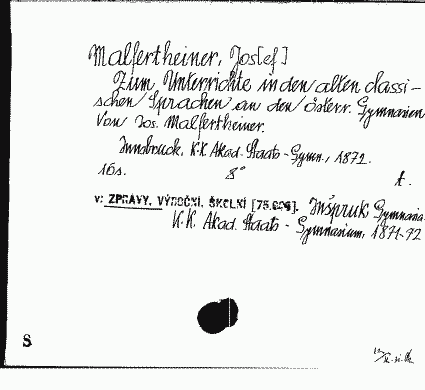 Malfertheiner, Jos[ef]
Zum Unterrichte in den alten classi-
schen Sprachen an den österr. Gymnasien
Von Jos. Malfertheiner.
Innsbruck, K.K. Akad. Staats-Gymn., 1872.
16s. 8° A.
v: ZPRÁVY, VÝROČNÍ, ŠKOLNÍ [75.006]. Inšpruk Gymnasia.
K.K. Akad. Staats-Gymnasium, 1871-72
S